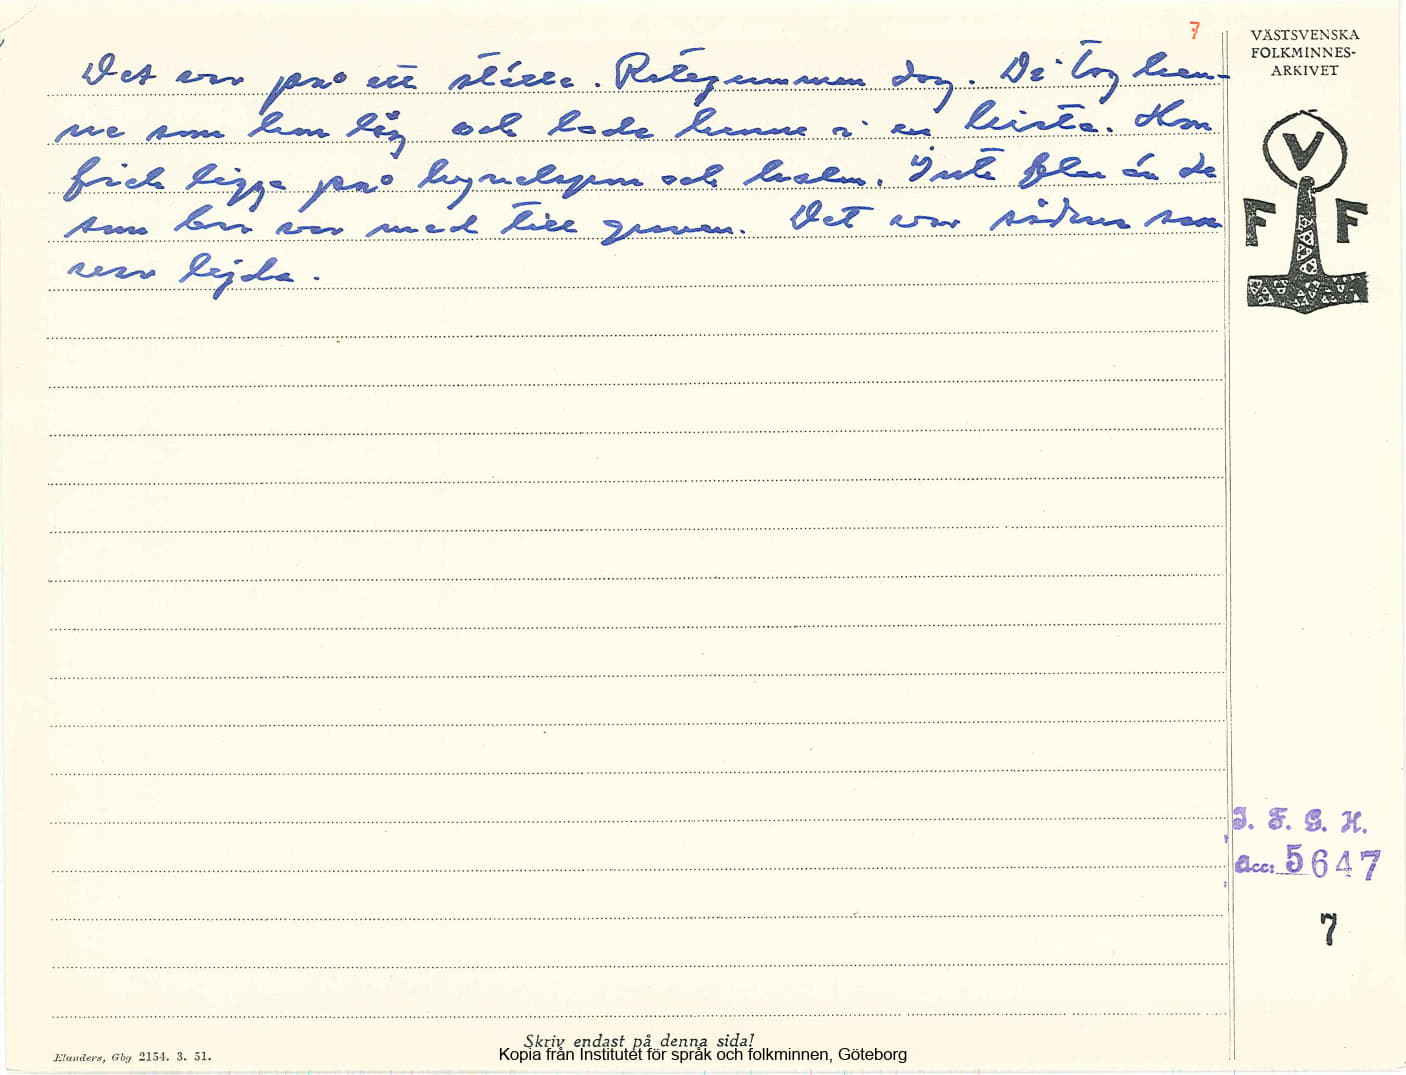 7
VÄSTSVENSKA
FOLKMINNES-
ARKIVET
V
F F
Det var på ett ställe. Rotegumman dog. De tog hen-
ne som hon låg och lade henne i en kista. Hon
fick ligga på hyndepm och halm. Inte fler än de
som bar var med till graven. Det var sådana som
var lejda.
I. F. G. H.
acc: 5647
7
Elanders, Gbg 2154. 3. 51.
Skriv endast på denna sida!
Kopia från Institutet för språk och folkminnen, Göteborg